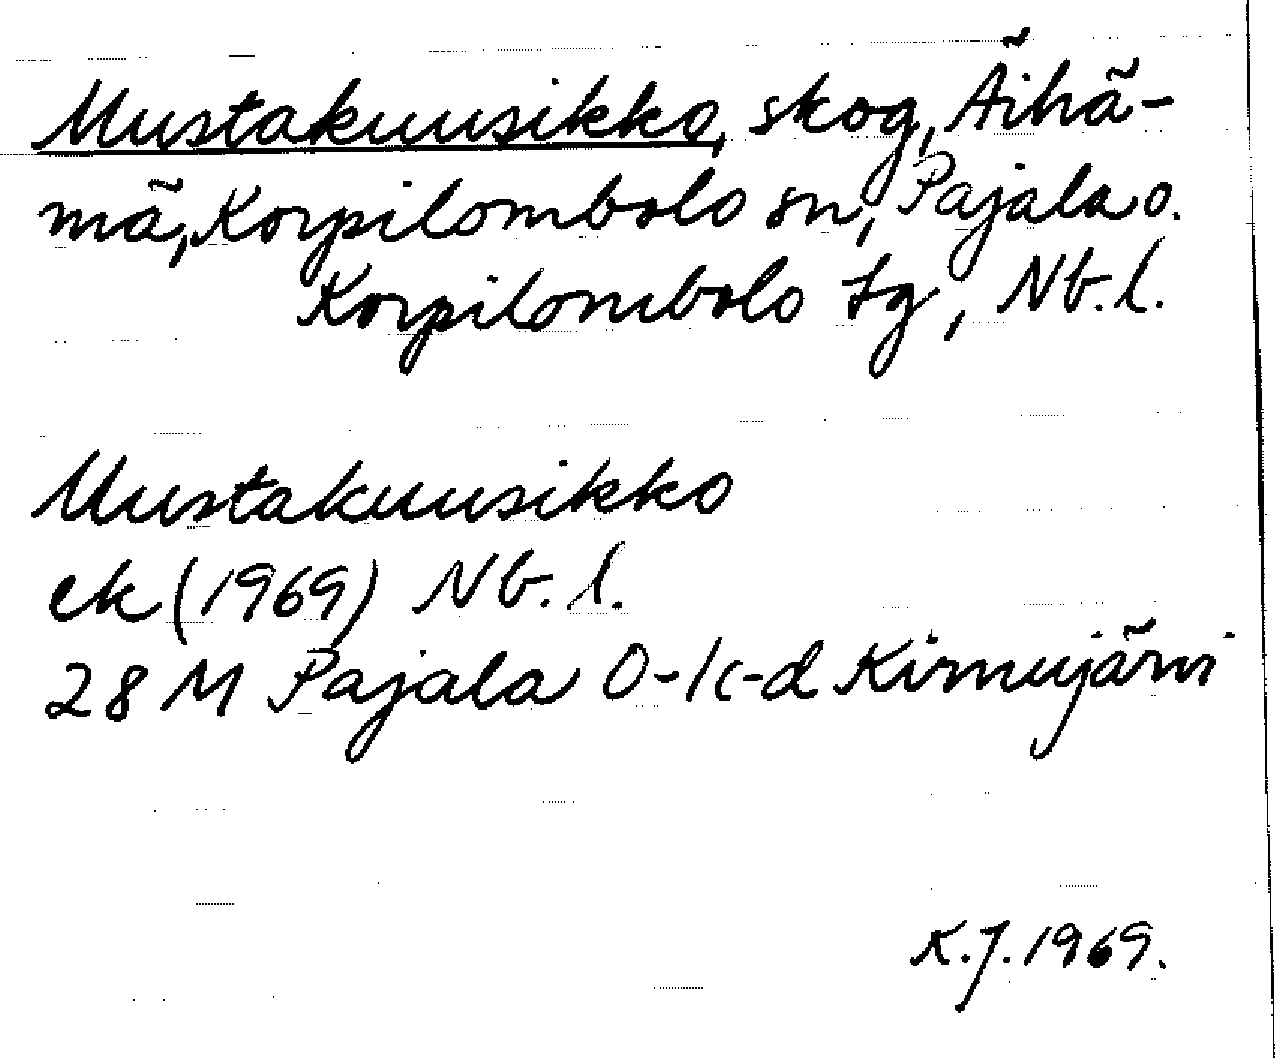 Mustakuusikko, skog, Äihä-
mä, Korpilombolo sn, Pajala o.
Korpilombolo tg, Nb.l.
Mustakuusikko
ek (1969) Nb.l.
28 M Pajala 0-1c-d Kirnujärvi
K.J. 1969.